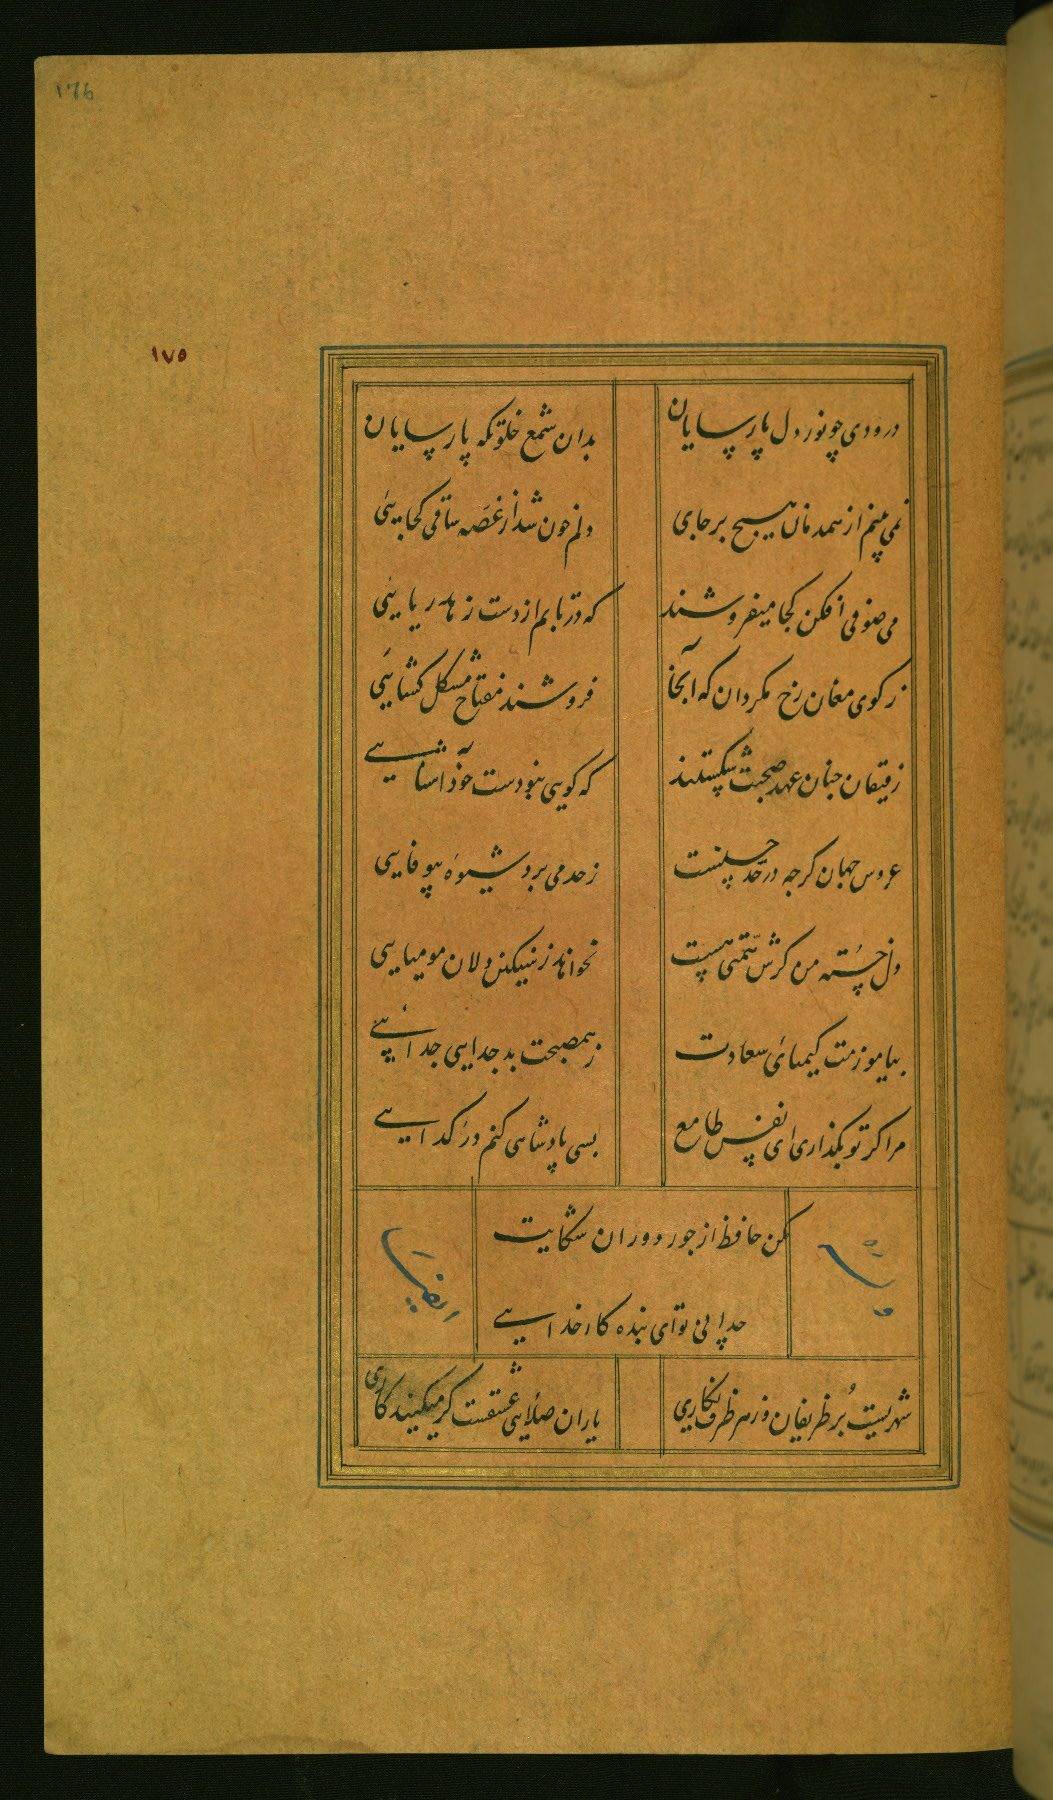 ۱۷۶
۱۷۵
درودی چو نور دل پارسایان
بدان شمع خلوتکه پارسایان
نمی بینم از همدمان هیچ بر جای
دلم خون شد از غصه ساقی کجایی
می صوفی افکن کجا میفروشند
که در تابم از دست زهد ریایی
ز کوی مغان رخ مکردان که آنجا
فروشند مفتاح مشکل کشایی
رفیقان چنان عهد صحبت شکستند
که کویی نبودست خود آشنایی
عروس جهان کرچه در حد حسنست
ز حد می برد شیوه بیوفایی
دل خسته من کرش همتی هست
نخواهد ز سنکین دلان مومیایی
بیاموزمت کیمیای سعادت
ز هم صحبت بد جدایی جدایی
مرا کر تو بکذاری ای نفس طامع
بسی پادشاهی کنم در کدایی
مکن حافظ از جور دوران شکایت
چه دانی تو ای بنده کار خدایی
وله
ایضا
شهریست پر ظریفان وز هر طرف نکاری
یاران صلای عشقست کر میکنید کاری